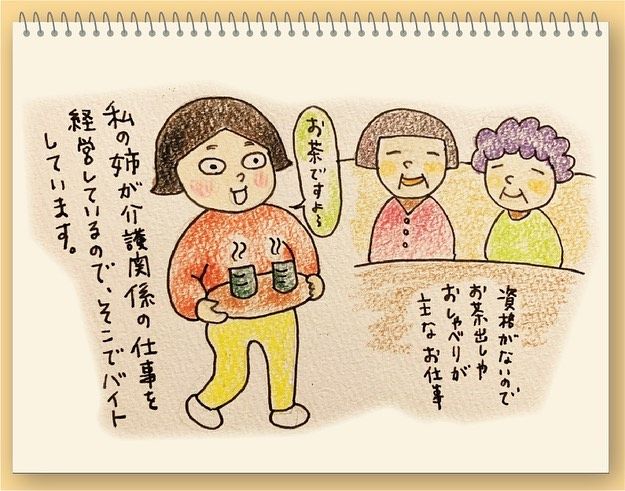 私の姉が介護関係の仕事を
経営しているので、そこでバイト
しています。
お茶ですよ〜
資格がないので
お茶出しや
おしゃべりが
主なお仕事